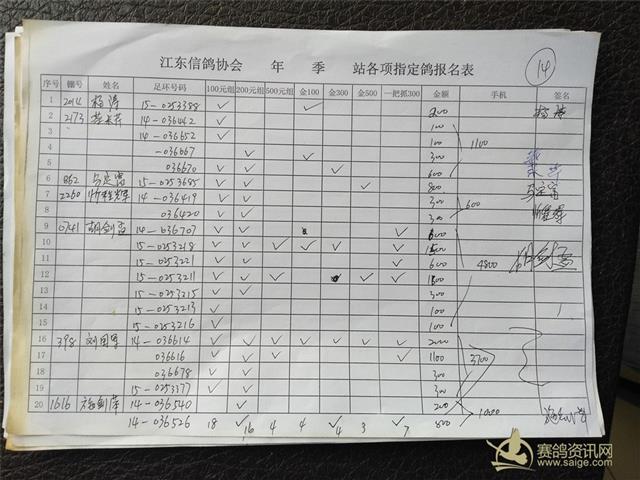 江东信鸽协会 年 季 站各项指定鸽报名表
14
序号 棚号 姓名 足环号码 100元组 200元组 500元组 金100 金300 金500 一把抓300 金额 手机 签名
1 2014 杨涛 15-0253388 ✓ ✓ 200
2 2173 14-036442 ✓ 100
3 14-036652 ✓ 100 1100
4 -036667 ✓ ✓ 300
5 036670 ✓ ✓ 600
6 862 15-0253685 ✓ ✓ ✓ 800
7 2260 14-036419 ✓ ✓ 300 600
8 036420 ✓ ✓ 300
9 0741 胡剑孟 14-036707 ✓ ✓ ✓
10 15-0253218 ✓ ✓ ✓ ✓ ✓ ✓
11 15-0253221 ✓ ✓ ✓ 600 4800
12 15-0253211 ✓ ✓ ✓ ✓ ✓
13 15-0253215 ✓ ✓ 300
14 15-0253213 ✓ 100
15 15-0253216 ✓ 100
16 398 刘国军 14-036614 ✓ ✓ ✓ ✓ ✓ ✓ ✓ 2000
17 036616 ✓ ✓ ✓ ✓ 1100 3700
18 036678 ✓ ✓ 300
19 15-0253377 ✓ ✓ 300
20 1616 14-036540 ✓ 200 1000
14-036526 18 ✓ 16 4 4 ✓ 4 3 ✓ 7 800
赛鸽资讯网
www.saige.com